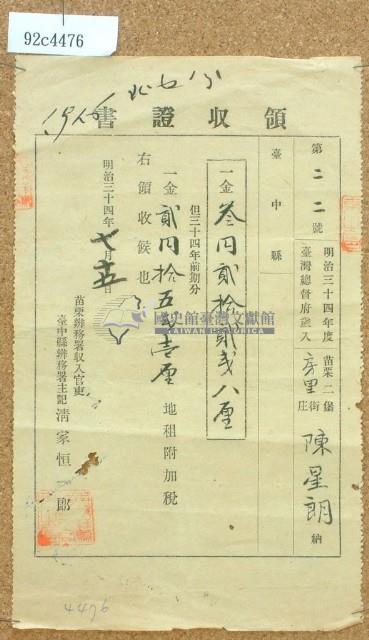 92c4476
領收證書
第二二號
明治三十四年度
臺灣總督府歲入
苗栗二堡
房里
街
庄
陳星朗
納
臺中縣
一金叁円貳拾貳戔八厘
但三十四年前期分
一金貳円拾五戔壹厘
地租附加稅
右領收候也
明治三十四年七月五日
苗栗辨務署收入官吏
臺中縣辨務署主記
淸家恒一郎
國史館臺灣文獻館
TAIWAN HISTORICA
4476